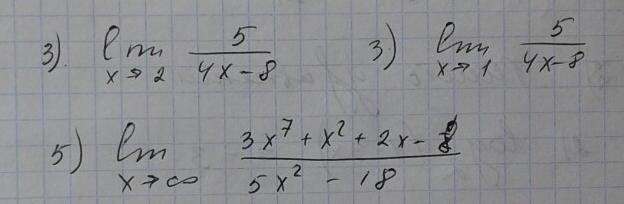 3). lim x→2 5/(4x-8) 3) lim x→1 5/(4x-8)
5) lim x→∞ (3x⁷+x²+2x-8)/(5x²-18)